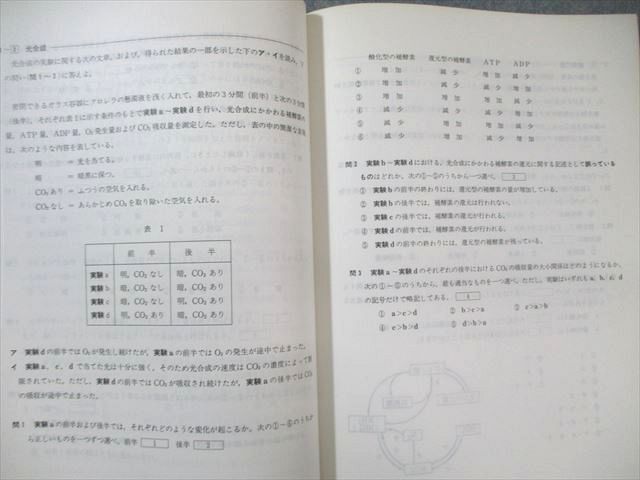 光合成
光合成の実験に関する次の文章、および、得られた結果の一部を示した下のア・イを読み、下
の問い(問1〜3)に答えよ。
密閉できるガラス容器にクロレラの懸濁液を浅く入れて、最初の3分間(前半)と次の3分間
(後半)、それぞれ表1に示す条件のもとで実験a〜実験dを行い、光合成にかかわる補酵素の
量、ATP量、ADP量、O₂発生量およびCO₂吸収量を測定した。ただし、表の中の簡潔な表現
は、次のような内容を表している。
明 = 光を当てる。
暗 = 暗黒に保つ。
CO₂あり = ふつうの空気を入れる。
CO₂なし = あらかじめCO₂を取り除いた空気を入れる。
表 1
前 半 後 半
実験a 明、CO₂なし 暗、CO₂あり
実験b 暗、CO₂なし 暗、CO₂あり
実験c 明、CO₂なし 明、CO₂あり
実験d 明、CO₂あり 明、CO₂あり
ア 実験dの前半ではO₂が発生し続けたが、実験aの前半ではO₂の発生が途中で止まった。
イ 実験a、c、dで当てた光は十分に強く、そのため光合成の速度はCO₂の濃度によって制
限されていた。ただし、実験dの前半ではCO₂が吸収され続けたが、実験aの後半ではCO₂
の吸収が途中で止まった。
問1 実験aの前半および後半では、それぞれどのような変化が起こるか。次の①〜⑥のうちか
ら正しいものを一つずつ選べ。前半 1 後半 2
酸化型の補酵素 還元型の補酵素 ATP ADP
① 増 加 減 少 増 加 減 少
② 増 加 減 少 減 少 増 加
③ 増 加 増 加 増 加
④ 減 少 増 加 増 加 減 少
⑤ 減 少 増 加 減 少 増 加
⑥ 減 少 減 少 減 少
問2 実験b〜実験dにおける、光合成にかかわる補酵素の還元に関する記述として誤っている
ものはどれか。次の①〜⑤のうちから一つ選べ。 3
① 実験bの前半の終わりには、還元型の補酵素の量が増加している。
② 実験bの後半では、補酵素の還元は行われない。
③ 実験cの後半では、補酵素の還元が行われる。
④ 実験dの前半では、補酵素の還元が行われる。
⑤ 実験dの前半の終わりには、還元型の補酵素が残っている。
問3 実験a〜実験dのそれぞれの後半におけるCO₂の吸収量の大小関係はどのようになるか。
次の①〜⑤のうちから、最も適当なものを一つ選べ。ただし、実験はいずれもa、b、c、d
の記号だけで略記してある。 4
① a>c>d ② b>c>a ③ c>a>b
④ c>b>d ⑤ d>b>a